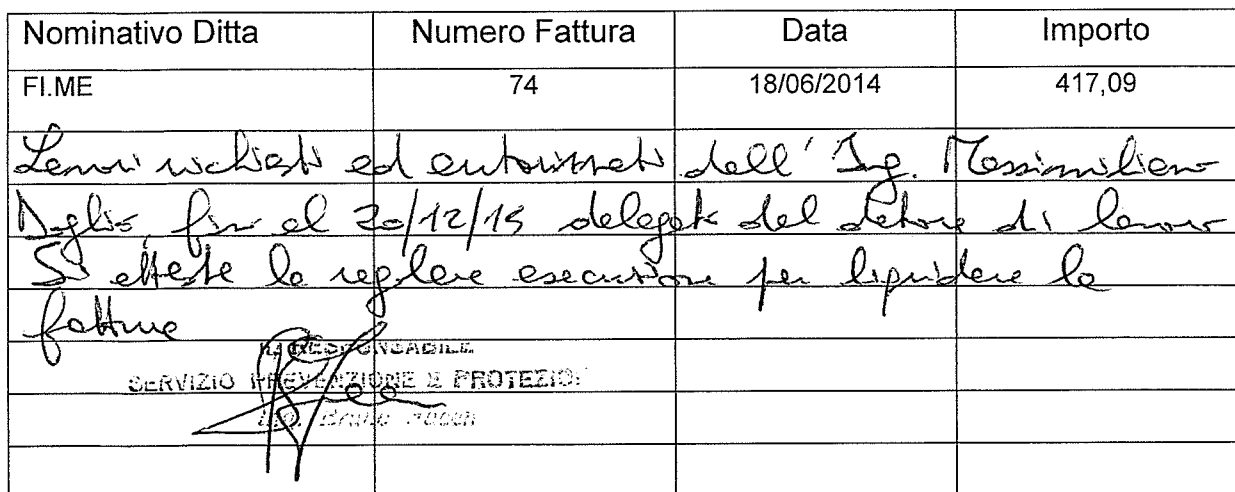 Nominativo Ditta Numero Fattura Data Importo
FI.ME 74 18/06/2014 417,09
Lavori richiesti ed autorizzati dall' Ing. Massimiliano
fino al 20/12/15 delegato del datore di lavoro
Si attesta la regolare esecuzione per liquidare la
fattura
IL RESPONSABILE
SERVIZIO PREVENZIONE E PROTEZIO
Ing. Bruno